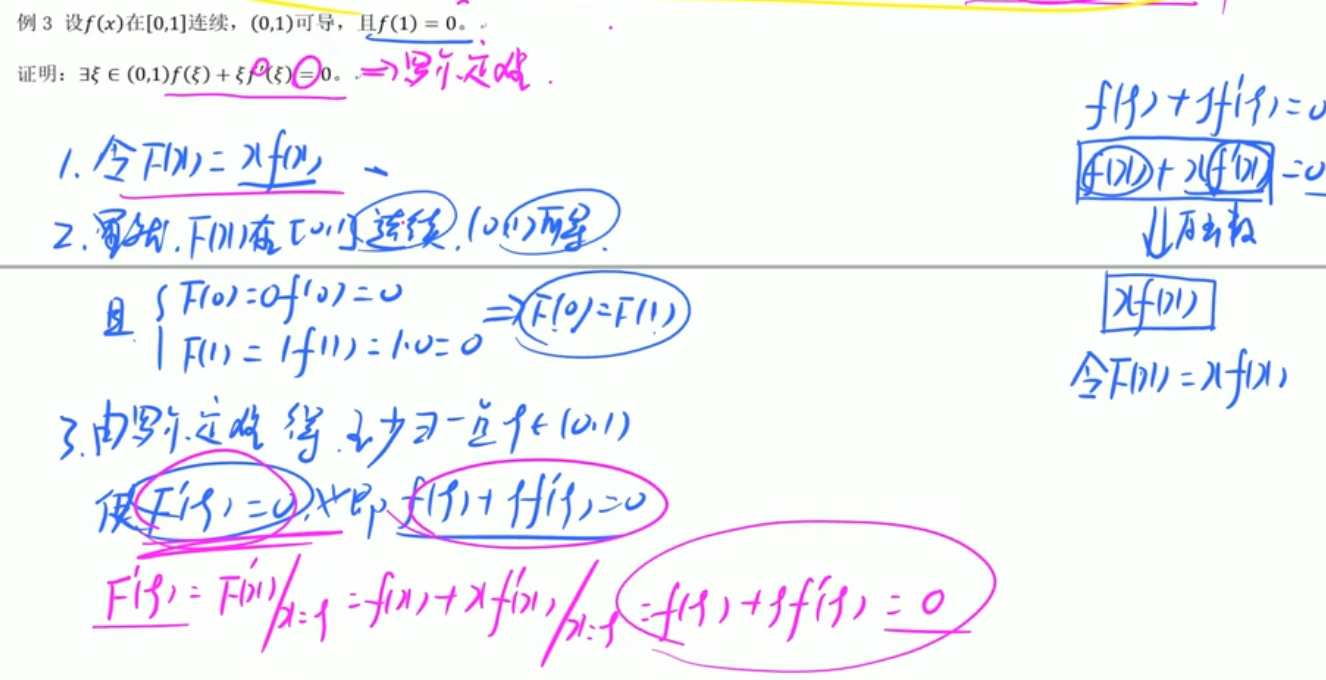 例 3 设f(x)在[0,1]连续，(0,1)可导，且f(1) = 0。
证明：∃ξ ∈ (0,1)f(ξ) + ξf′(ξ) = 0。 ⇒罗尔定理.
1. 令F(x) = xf(x)
2. 显然, F(x)在[0,1]连续, (0,1)可导.
且 { F(0)=0f(0)=0
F(1) = 1f(1) = 1·0 = 0 ⇒ F(0)=F(1)
3. 由罗尔定理得, 至少∃一点ξ∈(0,1)
使F′(ξ)=0, 也即, f(ξ)+ξf′(ξ)=0
F′(ξ) = F′(x)/x=ξ = f(x)+xf′(x)/x=ξ = f(ξ)+ξf′(ξ) = 0
f(ξ)+ξf′(ξ)=0
f(x)+xf′(x)=0
⇓原函数
xf(x)
令F(x) = xf(x)